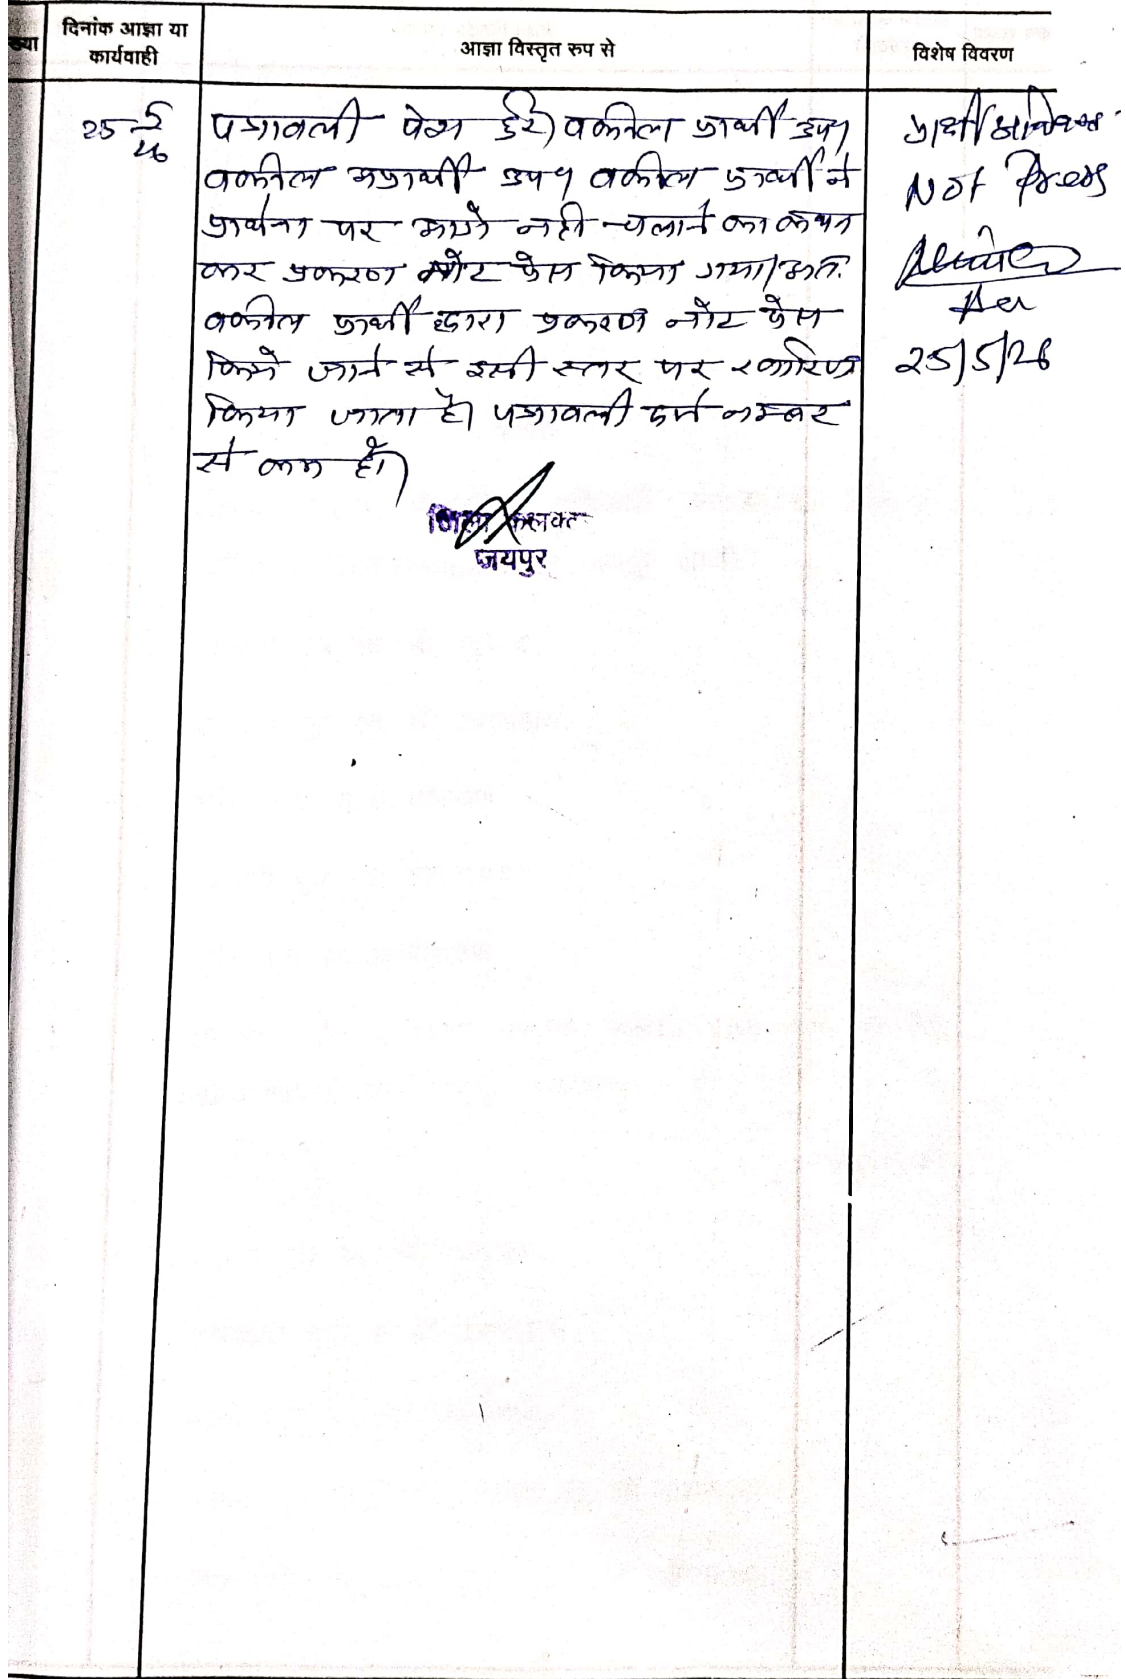 ख्या
दिनांक आज्ञा या
कार्यवाही
आज्ञा विस्तृत रुप से
विशेष विवरण
25 5/26
पत्रावली पेश हुई। वकील प्रार्थी उप०
वकील अप्रार्थी उप० वकील प्रार्थी ने
प्रार्थना पत्र आगे नही चलाने का कथन
कर प्रकरण नोट प्रेस किया गया। अतः
वकील प्रार्थी द्वारा प्रकरण नोट प्रेस
किये जाने से इसी स्तर पर खारिज
किया जाता है। पत्रावली दर्ज नम्बर
से कम हो।
जिला कलक्टर
जयपुर
प्रार्थी
Not Press
25/5/26